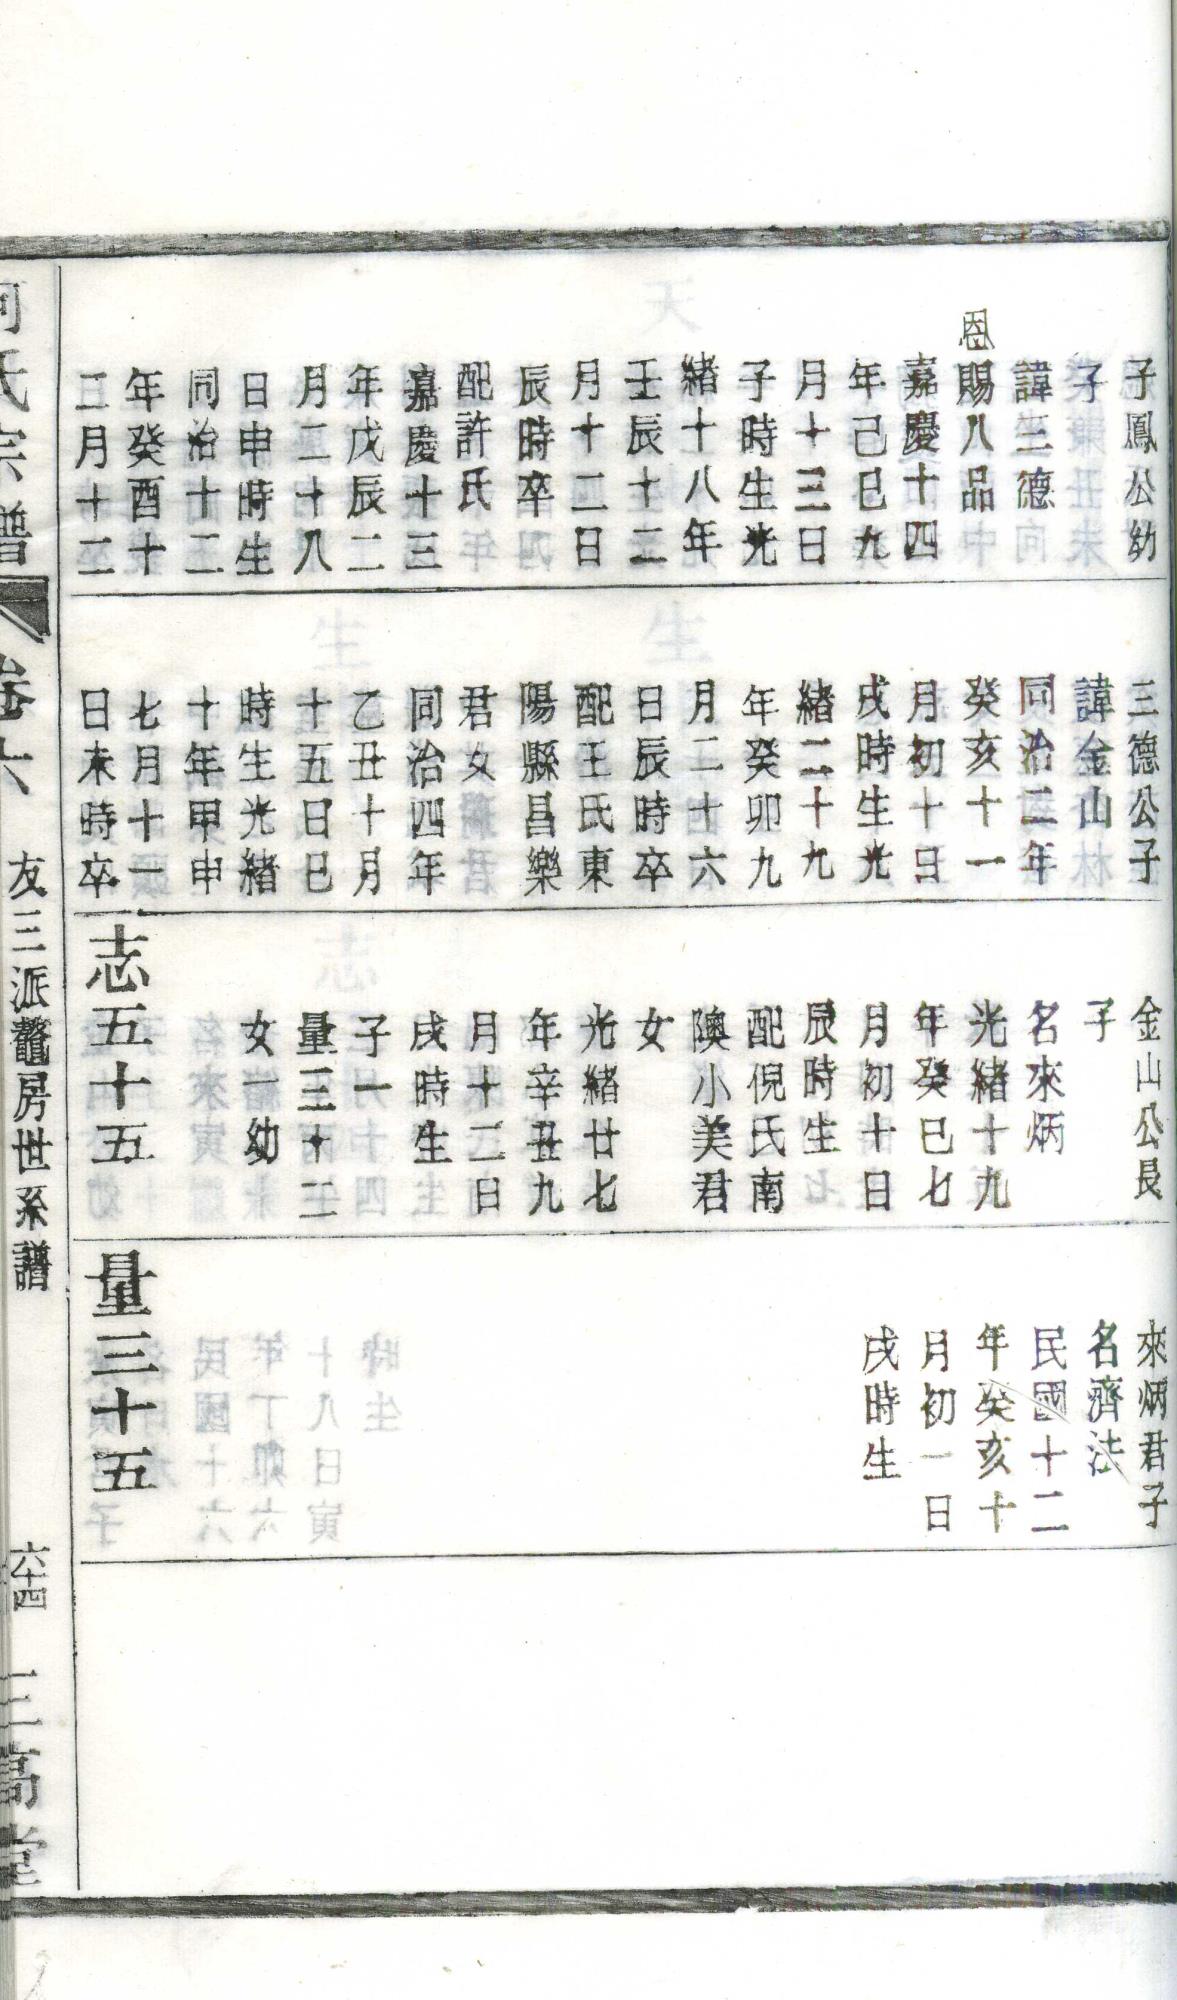 子鳳公幼
子
諱三德
恩賜八品
嘉慶十四
年己巳九
月十三日
子時生光
緒十八年
壬辰十二
月十二日
辰時卒
配許氏
嘉慶十三
年戊辰二
月二十八
日申時生
同治十二
年癸酉十
二月十二
三德公子
諱金山
同治二年
癸亥十一
月初十日
戌時生光
緒二十九
年癸卯九
月二十六
日辰時卒
配王氏東
陽縣昌樂
君女
同治四年
乙丑十月
十五日巳
時生光緒
十年甲申
七月十一
日未時卒
金山公長
子
名來炳
光緒十九
年癸巳七
月初十日
辰時生
配倪氏南
陳小美君
女
光緒廿七
年辛丑九
月十二日
戌時生
子一
量三十二
女一幼
志五十五
來炳君子
名濟法
民國十二
年癸亥十
月初一日
戌時生
量三十五
氏宗譜
卷六
友三派鰲房世系譜
六十四
三高堂